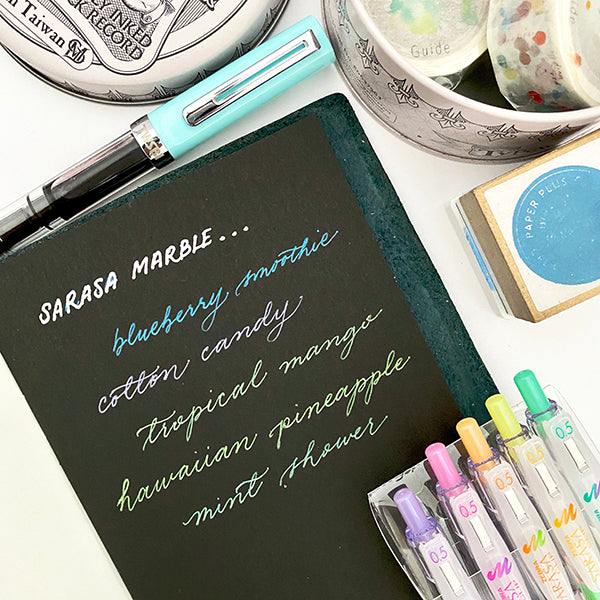 in Taiwan
INKED
TRACK RECORD
Guide
PAPER PLUS
SARASA MARBLE...
blueberry smoothie
cotton candy
tropical mango
hawaiian pineapple
mint shower
0.5
0.5
0.5
0.5
0.5
ZEBRA
SARASA